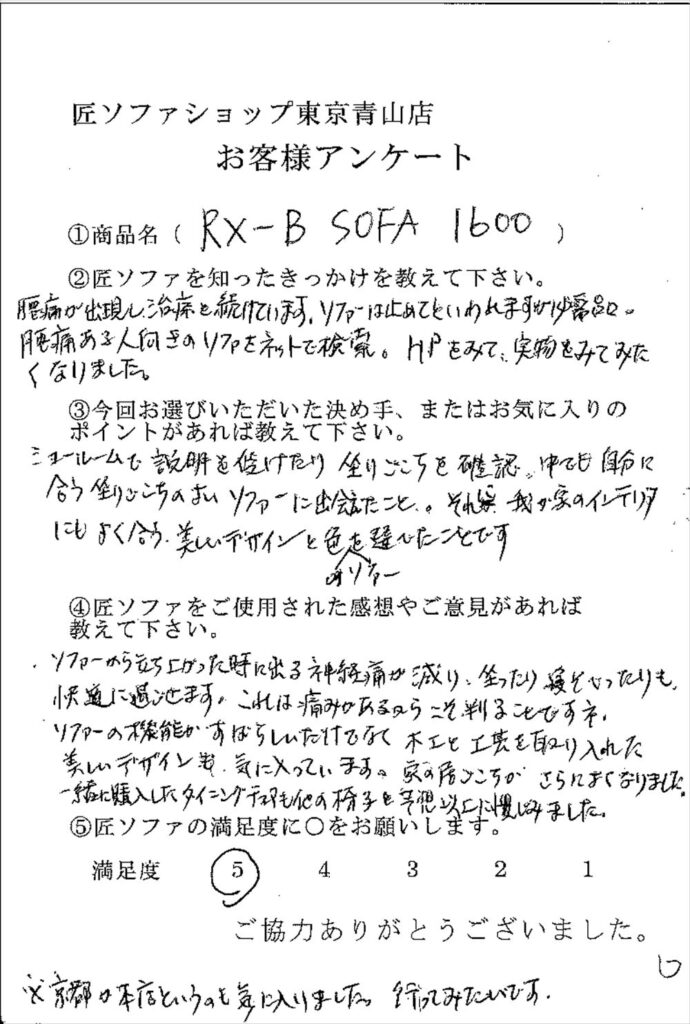 匠ソファショップ東京青山店
お客様アンケート
①商品名（ RX-B SOFA 1600 ）
②匠ソファを知ったきっかけを教えて下さい。
腰痛が出現し治療を続けています。ソファーは止めてといわれますが必需品。
腰痛ある人向きのソファをネットで検索。HPをみて、実物をみてみた
くなりました。
③今回お選びいただいた決め手、またはお気に入りの
ポイントがあれば教えて下さい。
ショールームで説明を受けたり坐りごこちを確認。中でも自分に
合う坐りごこちのよいソファーに出会えたこと。その際我が家のインテリア
にもよく合う、美しいデザインと色を選べたことです
のソファー
④匠ソファをご使用された感想やご意見があれば
教えて下さい。
ソファーから立ち上がった時に出る神経痛が減り、坐ったり寝そべったりも、
快適に過せます。これは痛みがあるからこそ判ることですネ。
ソファーの機能がすばらしいだけでなく木工と工芸を取り入れた
美しいデザインも気に入っています。家の居ごこちがさらによくなりました。
一緒に購入したダイニングチェアも他の椅子を予想以上に
⑤匠ソファの満足度に○をお願いします。
満足度 5 4 3 2 1
ご協力ありがとうございました。
※京都が本店というのも気に入りました。行ってみたいです。